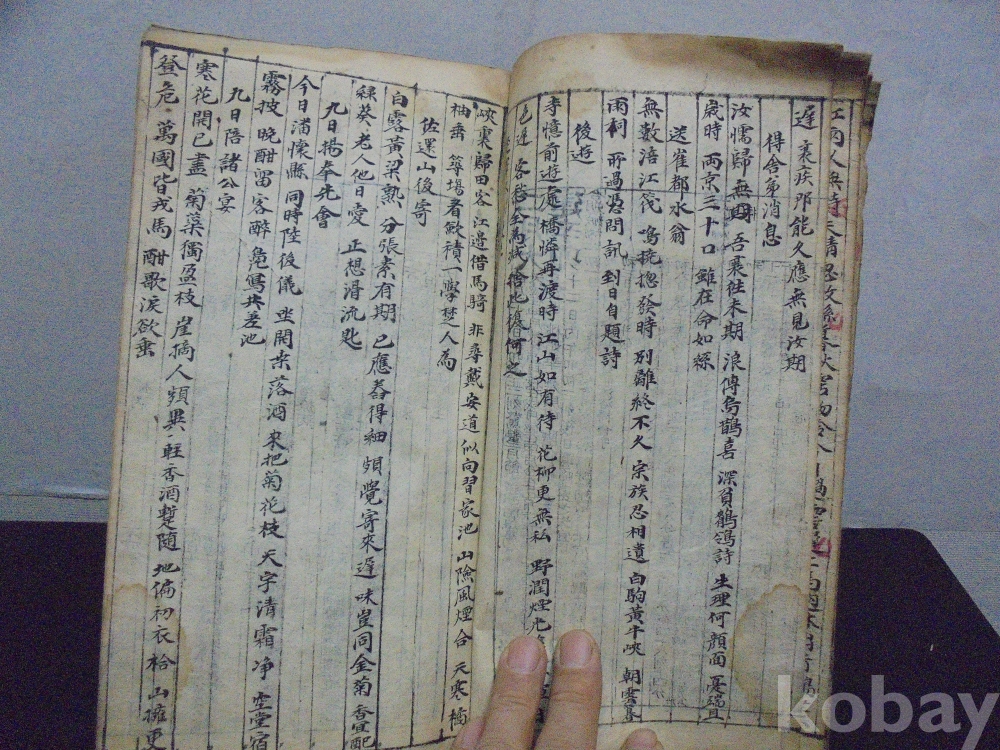 遲 衰疾那能久應無見汝期
得舍弟消息
汝懦歸無 吾衰徃未期 浪傳烏鵲喜 深負鶺鴒詩 生理何顔面 憂端且
歲時 兩京三十口 雖在命如絲
送崔都水翁
無數涪江筏 鳴撓揔發時 別離終不久 宗族忍相遺 白駒黃牛峽 朝雲暮
雨祠 所過憑問訊 到日自題詩
後遊
寺憶前遊處 橋憐再渡時 江山如有待 花柳更無私 野潤煙光
色遲 客愁全爲减 捨此復何之
峽裏歸田客 江邉借馬騎 非尋戴安道 似向習家池 山險風煙合 天寒橘
柚垂 築場看歛積 一學楚人爲
佐還山後寄
白露黃粱熟 分張素有期 已應舂得細 頻覺寄來遲 味豈同金菊 香宜配
綠葵 老人他日愛 正想滑流匙
九日揚奉先會
今日潘懷縣 同時陸俊儀 坐開桒落酒 來把菊花枝 天宇清霜淨 空堂宿
霧披 晩酣留客醉 鳧舄共差池
九日陪諸公宴
寒花開已盡 菊蘂獨盈枝 崖摘人頻異 輕香酒蹔隨 地偏初衣裌 山擁更
登危 萬國皆戎馬 酣歌淚欲垂
kobay